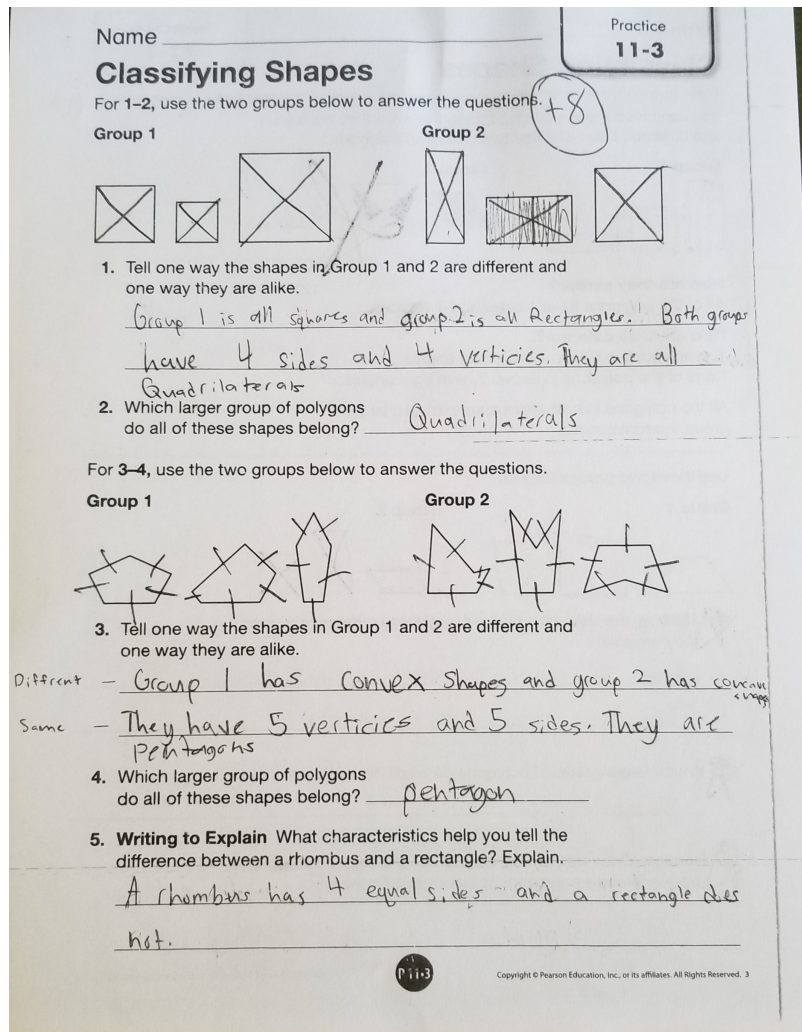 Name
Practice
11-3
Classifying Shapes
For 1–2, use the two groups below to answer the questions.
+8
Group 1
Group 2
1. Tell one way the shapes in Group 1 and 2 are different and
one way they are alike.
Group 1 is all squares and group 2 is all Rectangles. Both groups
have 4 sides and 4 verticies. They are all
Quadrilaterals
2. Which larger group of polygons
do all of these shapes belong? Quadrilaterals
For 3–4, use the two groups below to answer the questions.
Group 1
Group 2
3. Tell one way the shapes in Group 1 and 2 are different and
one way they are alike.
Diffrent – Group 1 has convex shapes and group 2 has concave
Same – They have 5 verticies and 5 sides. They are
4. Which larger group of polygons
do all of these shapes belong? pentagon
5. Writing to Explain What characteristics help you tell the
difference between a rhombus and a rectangle? Explain.
A rhombus has 4 equal sides and a rectangle does
not.
P 11•3
Copyright © Pearson Education, Inc., or its affiliates. All Rights Reserved. 3